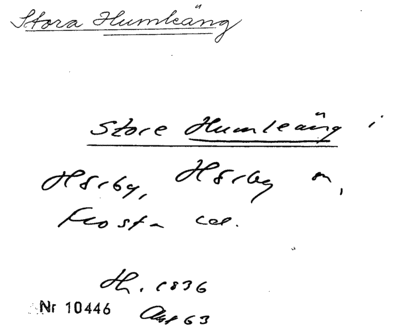 Stora Humleäng
Store Humleäng i
Hörby, Hörby sn,
Frosta hd.
Th. 1836
Nr 10446 Akt 63